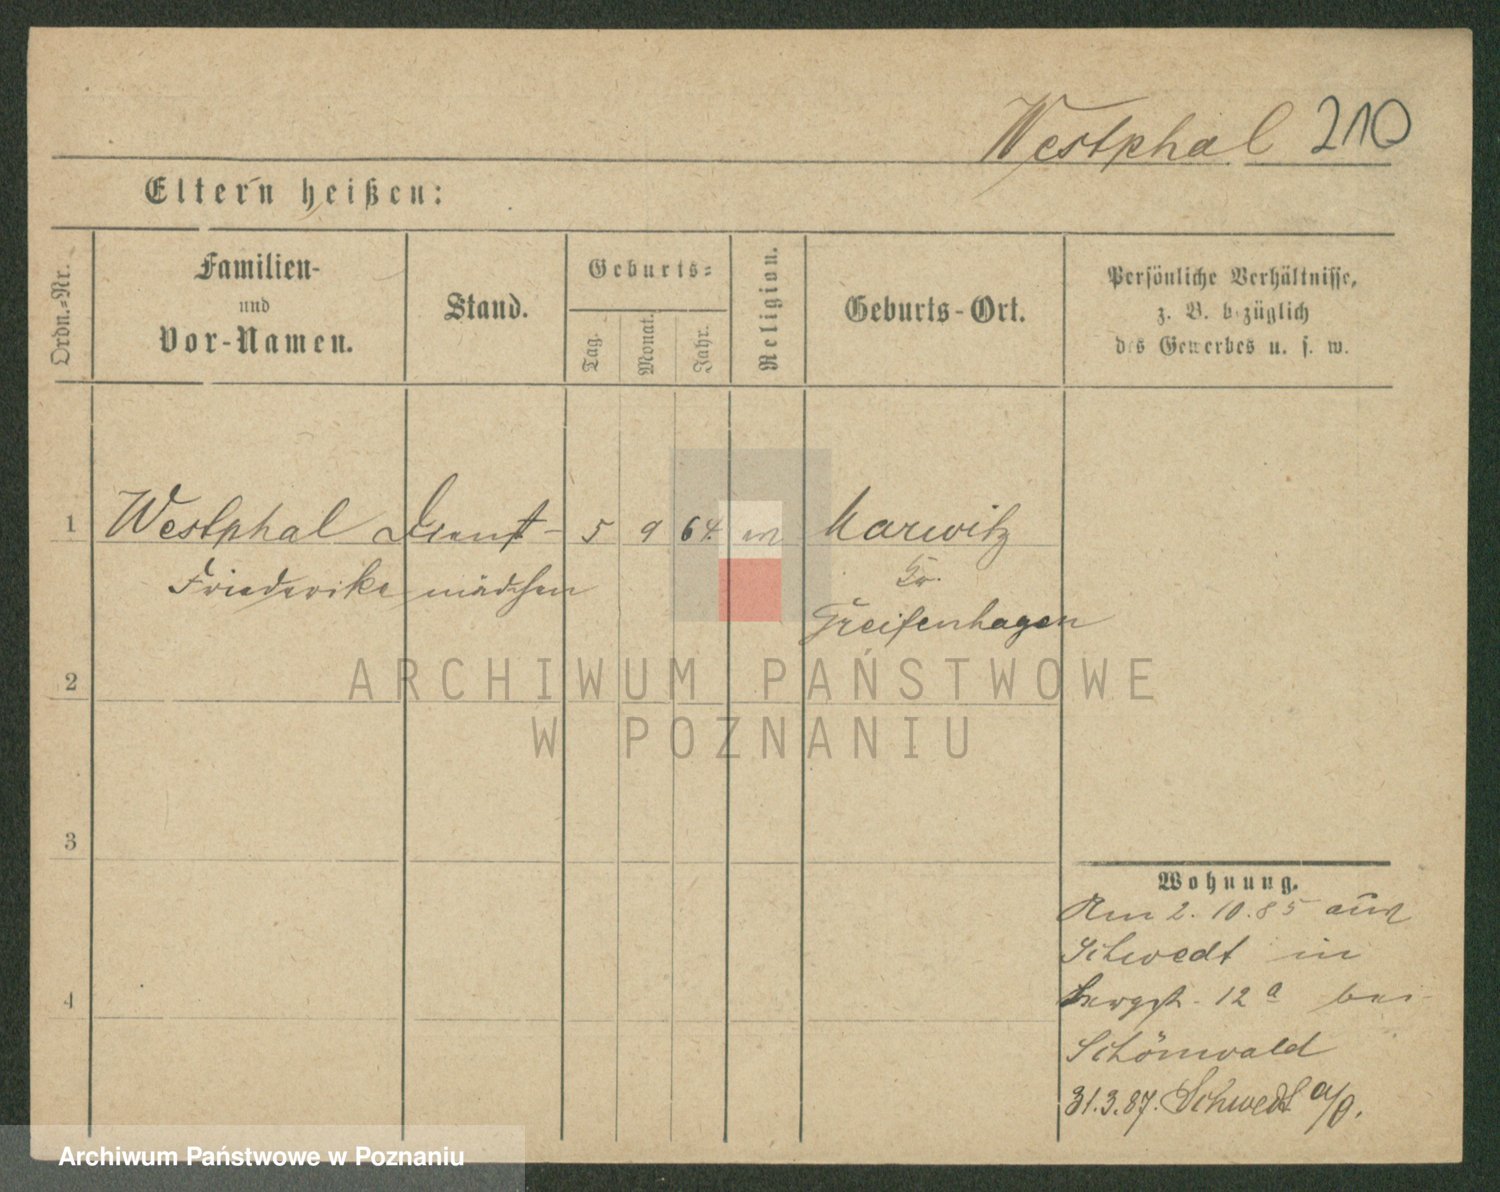 Westphal 210
Eltern heißen:
Ordn.-Nr.
Familien-
und
Vor-Namen.
Stand.
Geburts-
Tag.
Monat.
Jahr.
Religion.
Geburts-Ort.
Persönliche Verhältnisse,
z. B. bezüglich
des Gewerbes u. s. w.
1 Westphal Dienst- 5 9 64. Marwitz
Friederike mädchen Kr.
Greifenhagen
2
3
4
Wohnung.
Am 2. 10. 85 aus
Schwedt in
Bergst. 12 a bei
Schönwald
31.3.87. Schwedt a/O.
ARCHIWUM PAŃSTWOWE
W POZNANIU
Archiwum Państwowe w Poznaniu